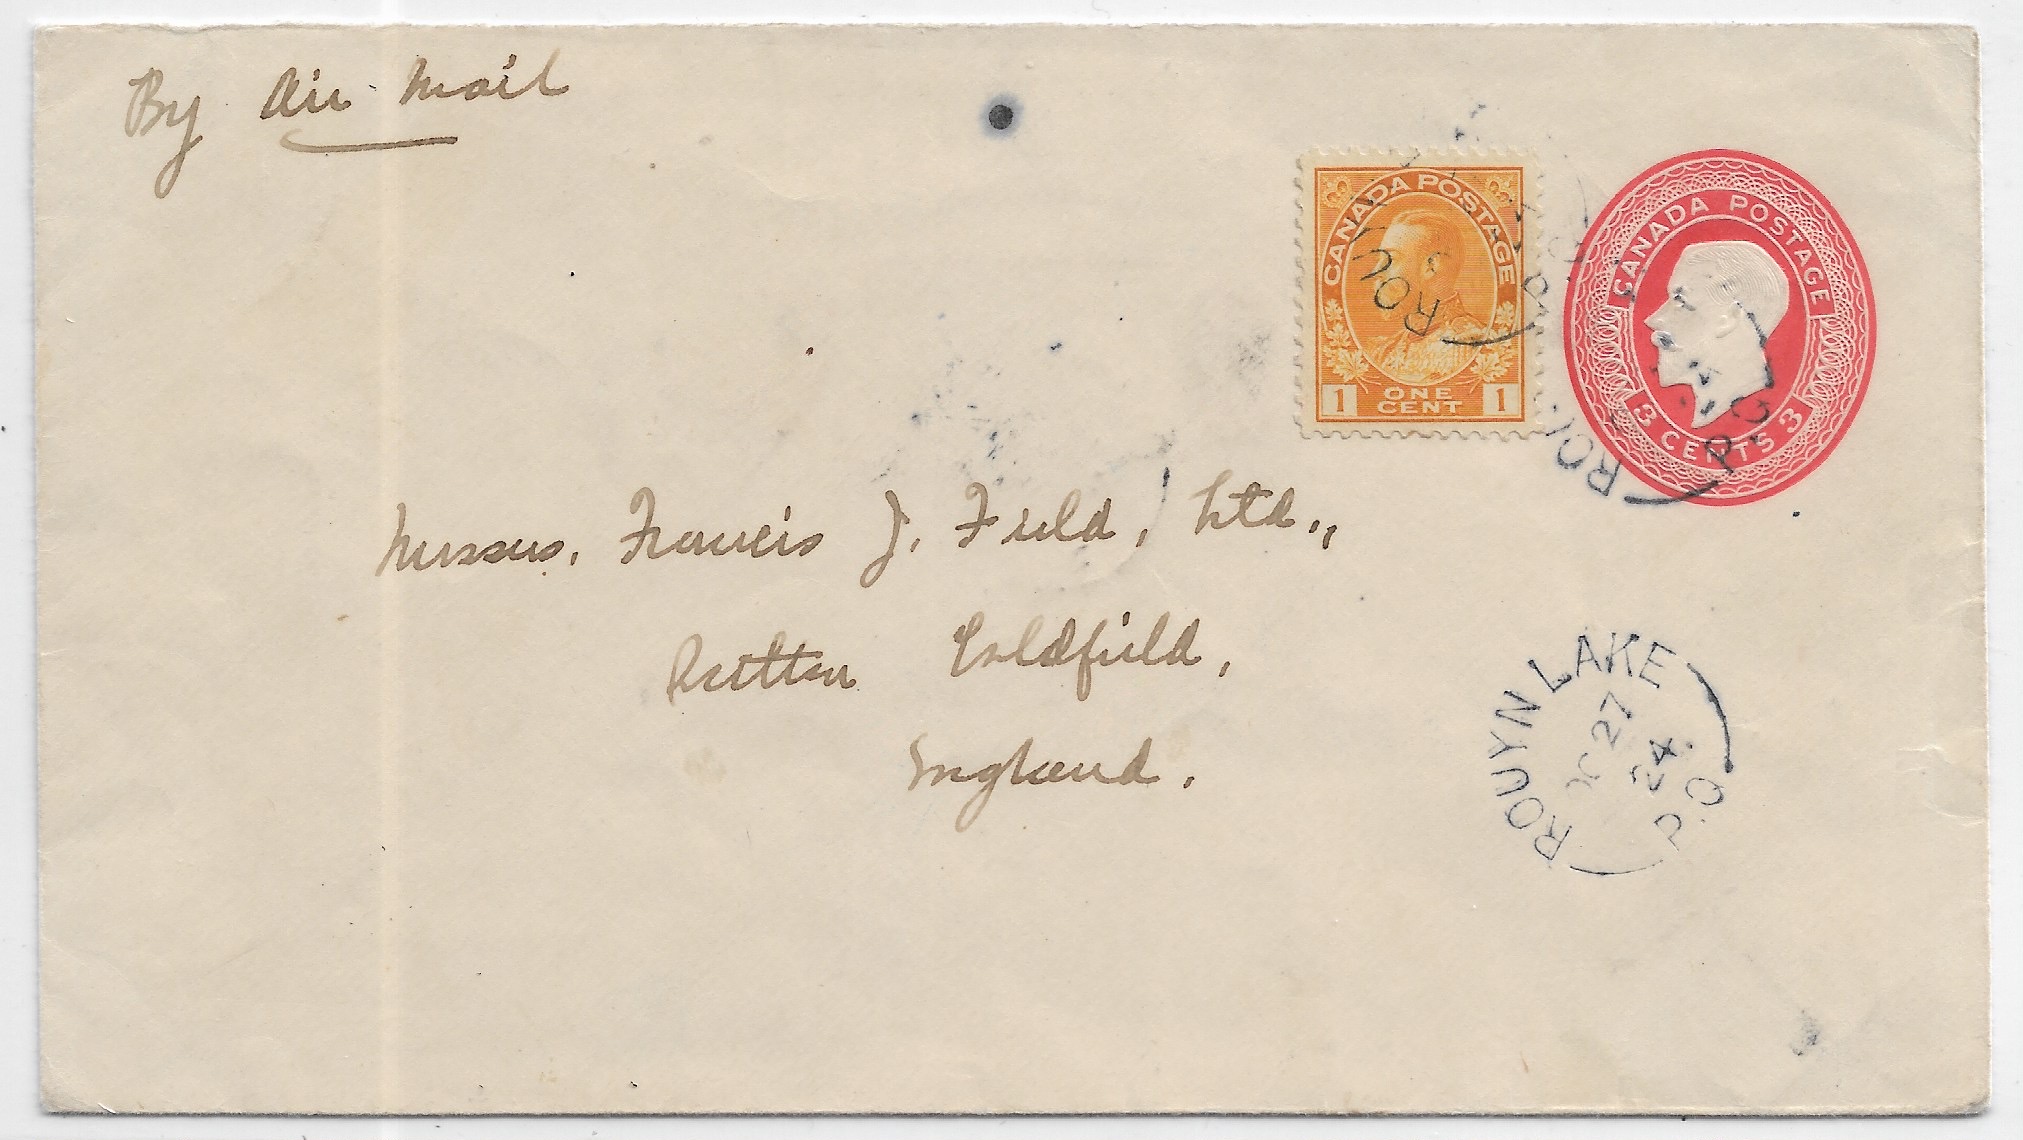 By Air Mail
CANADA POSTAGE
1 ONE CENT 1
ROUY
P.O
CANADA POSTAGE
3 CENTS 3
RO
P.O
Messrs. Francis J. Field, Ltd.,
Sutton Coldfield,
England.
ROUYN LAKE
27
24
P.O